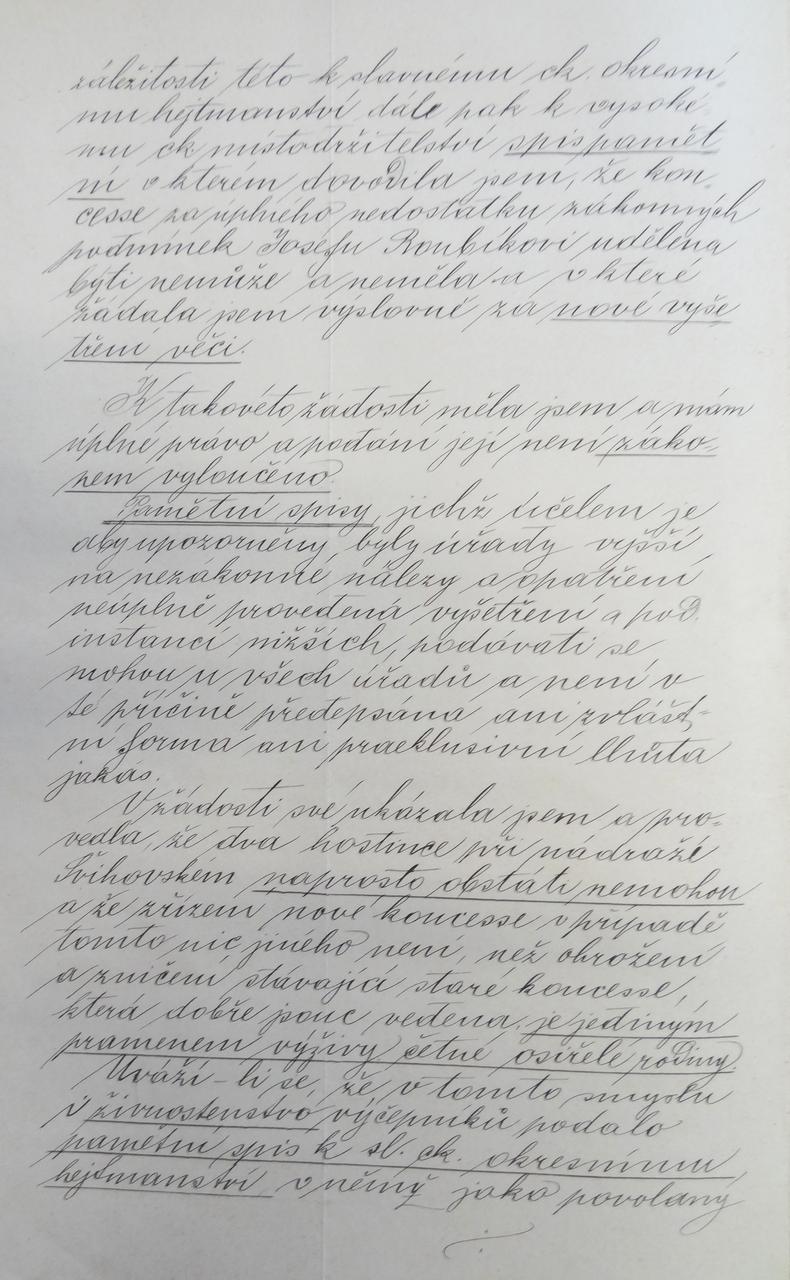 záležitosti této k slavnému ck. okresní-
mu hejtmanství dále pak k vysoké-
mu ck. místodržitelství spis pamět
ní v kterém dovodila jsem, že kon-
cesse za úplného nedostatku zákonných
podmínek Josefu Roubíkovi udělena
býti nemůže a neměla a v které
žádala jsem výslovně za nové vyše
tření věci.
K takovéto žádosti měla jsem a mám
úplné právo a podání její není záko-
nem vyloučeno.
Pamětní spisy, jichž účelem je
aby upozorněny byly úřady vyšší
na nezákonné nálezy a opatření
neúplně provedená vyšetření a pod.
instancí nižších, podávati se
mohou u všech úřadů a není v
té příčině předepsána ani zvlášt-
ní forma ani praeklusivní lhůta
jakás.
V žádosti své ukázala jsem a pro-
vedla, že dva hostince při nádraží
Švihovském naprosto obstáti nemohou
a že zřízení nové koncesse v případě
tomto nic jiného není, než ohrožení
a zničení stávající staré koncesse,
která dobře jsouc vedena, je jediným
pramenem výživy četné osiřelé rodiny.
Uváží-li se, že v tomto smyslu
i živnostenstvo výčepníků podalo
pamětní spis k sl. ck. okresnímu
hejtmanství v němž jako povolaný